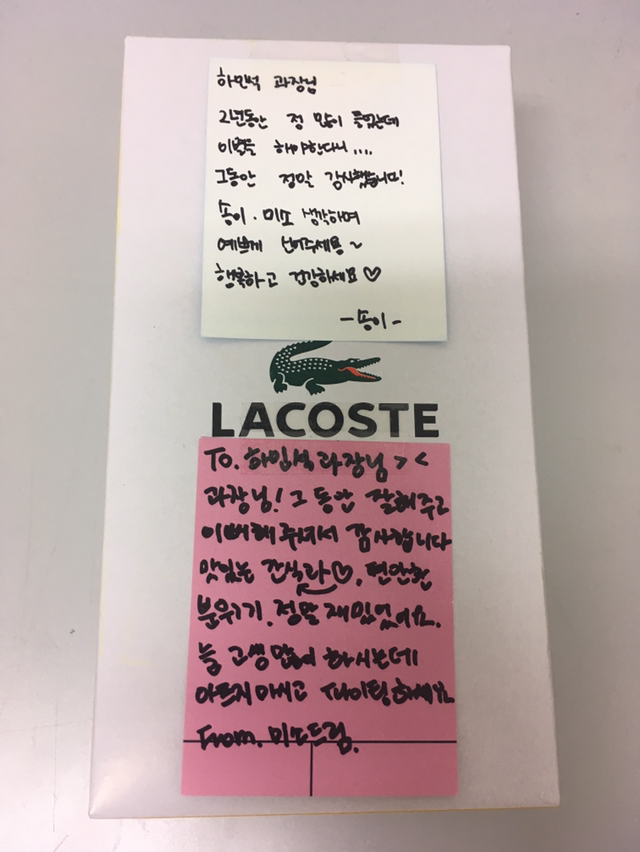 하민석 과장님
2년동안 정 많이 들었는데
이별을 해야한다니....
그동안 정말 감사했습니다!
송이·미소 생각하며
예쁘게 신어주세용~
행복하고 건강하세요♡
-송이-
LACOSTE
To. 하민석 과장님 > <
과장님! 그 동안 잘해주고
이뻐해 주셔서 감사합니다
맛있는 간식과♡, 편안한
분위기. 정말 재밌었어요.
늘 고생 많이 하시는데
아프지 마시고 화이팅 하세요
From. 미소드림.